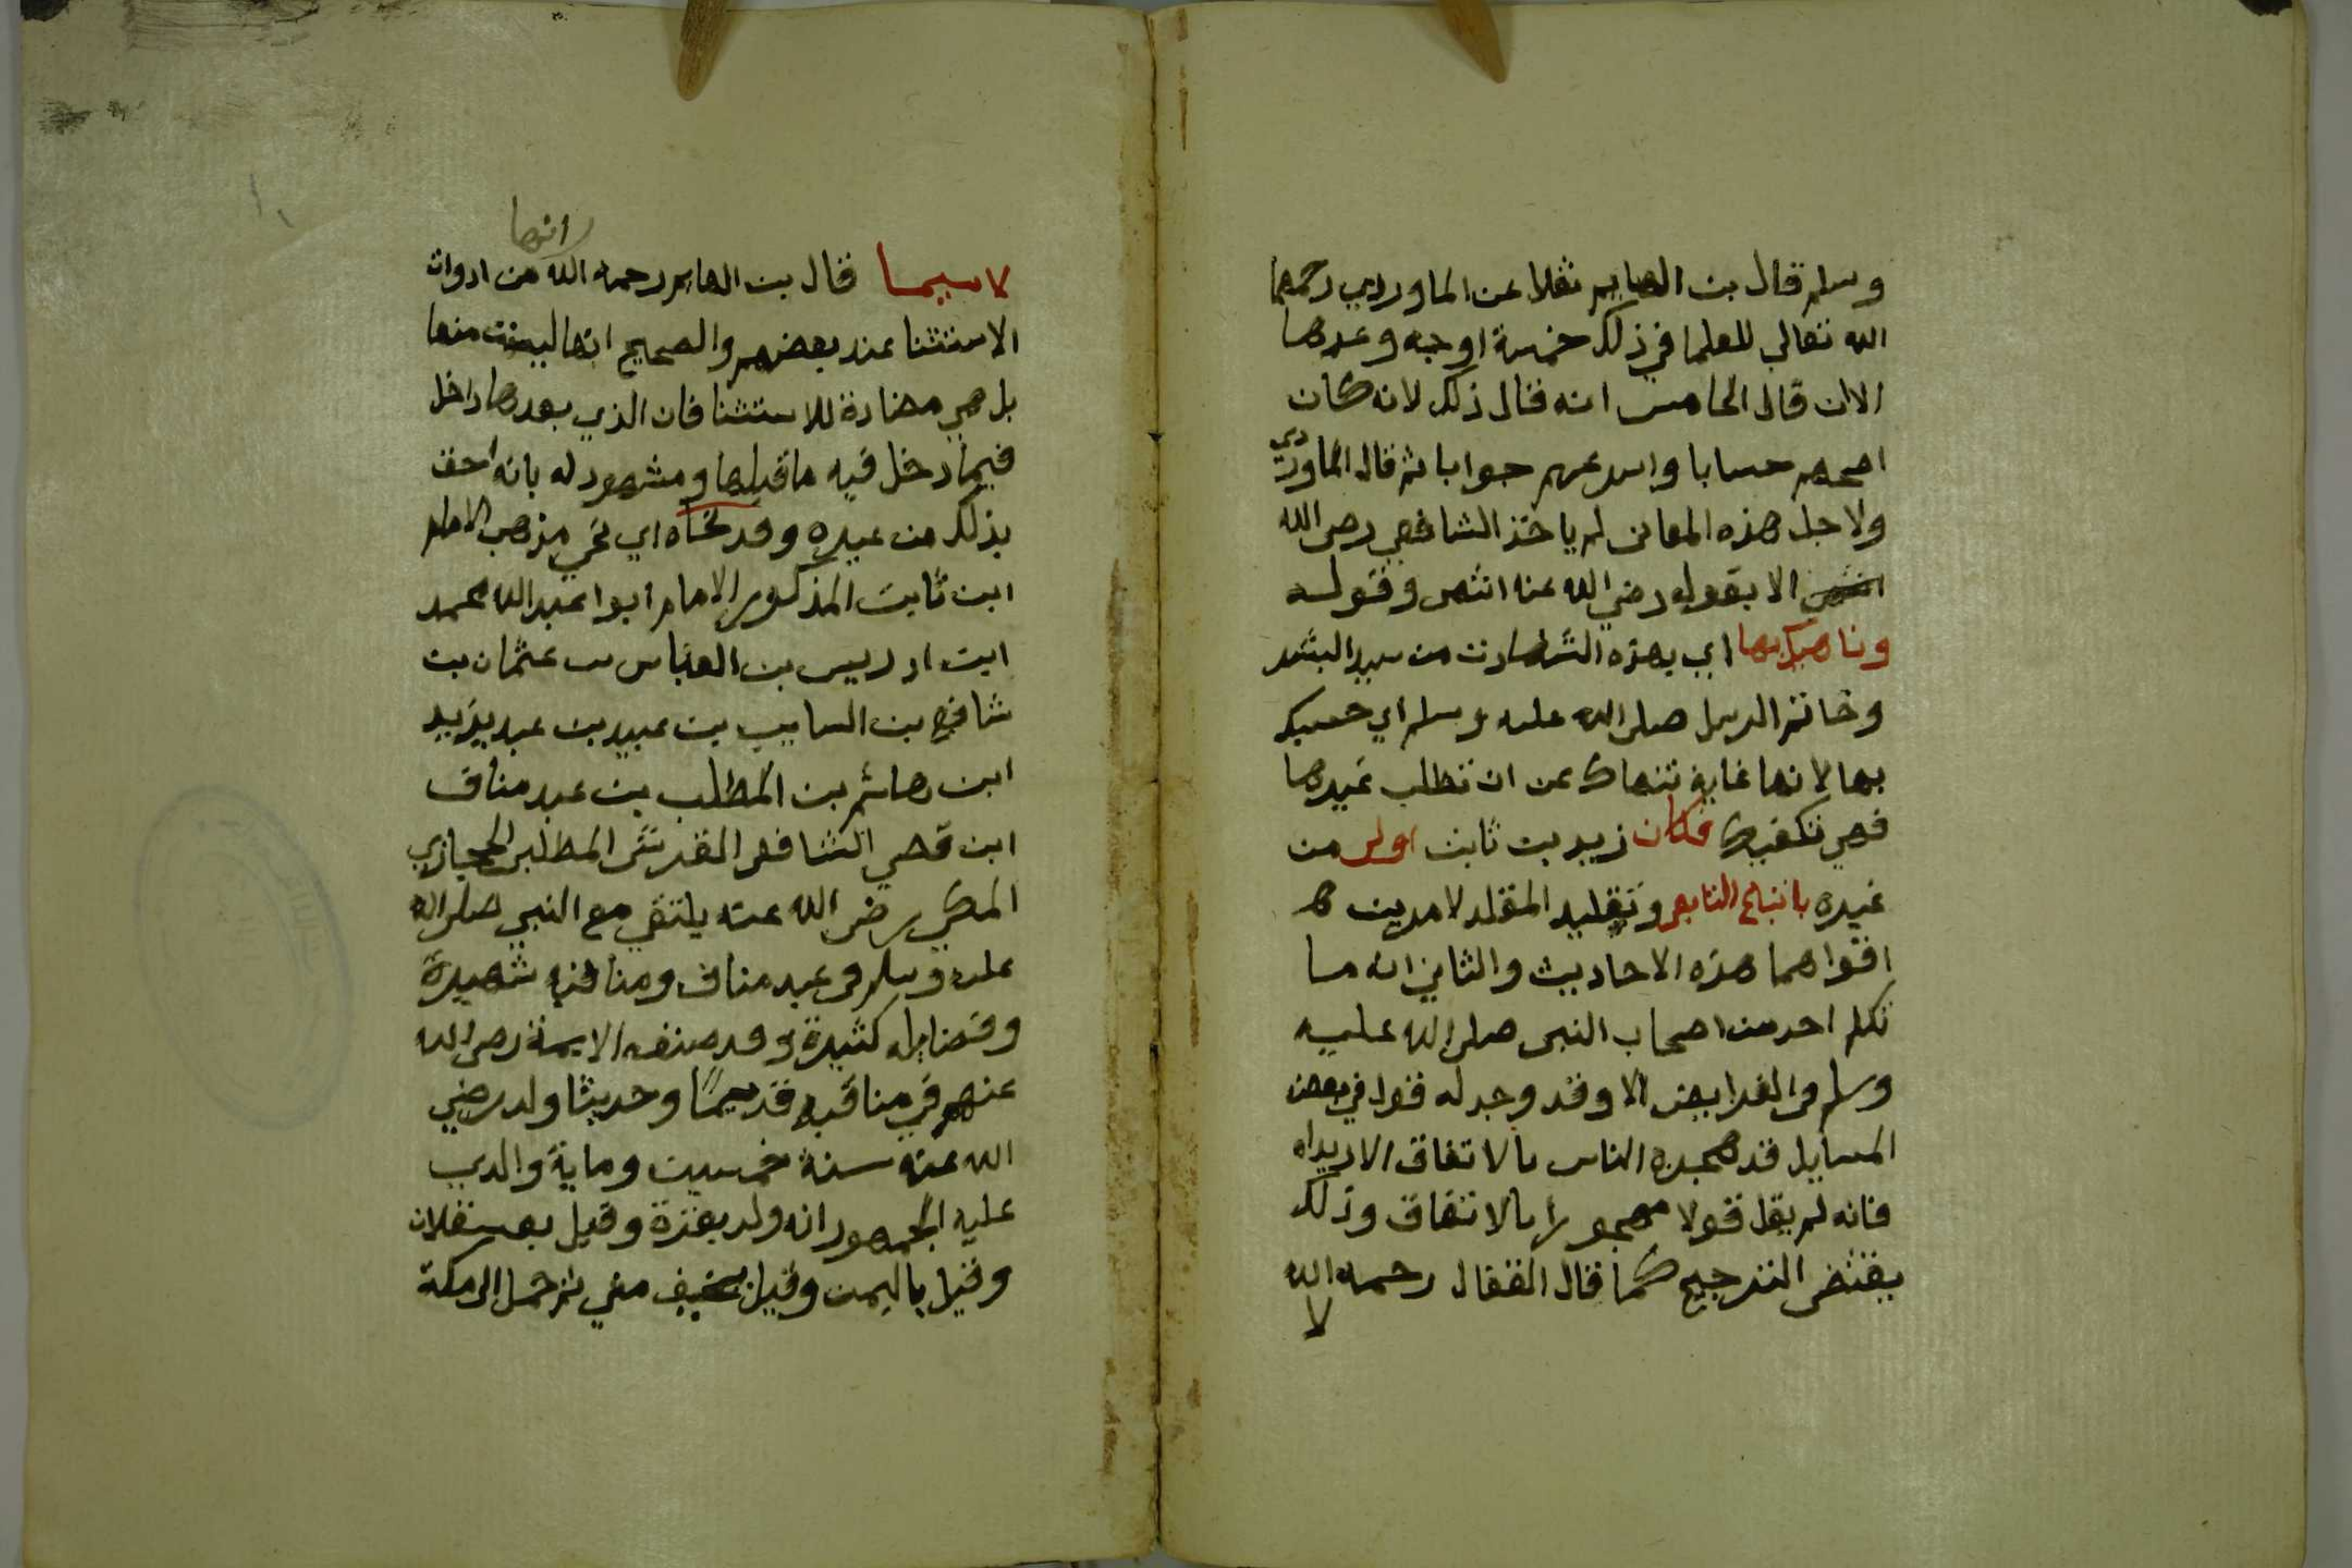 وسلم قال بن الهايم نقلا عن الماوردي رحمهما
الله تعالي للعلما في ذلك خمسة اوجه وعدها
الان قال الخامس انه قال ذلك لانه كان
اصحهم حسابا واسرعهم جوابا ثم قال الماوردي
ولاجل هذه المعاني لم ياخذ الشافعي رضي الله
الا بقوله رضي الله عنه انتهى وقوله
وناهيك بها اي بهذه الشهادت من سيد البشر
وخاتم الرسل صلى الله عليه وسلم اي حسبك
بها لانها غاية تنهاك عن ان تطلب غيرها
فهي تكفيك فكان زيد بن ثابت اولى من
غيره باتباع التابعي وتقليد المقلد لامرين
اقواهما هذه الاحاديث والثاني انه ما
تكلم احد من اصحاب النبي صلى الله عليه
وسلم في الفرايض الا وقد وجد له قول في بعض
المسايل قد هجره الناس بالاتفاق الا زيدا
فانه لم يقل قولا مهجورا بالاتفاق وذلك
يقتضي الترجيح كما قال القفال رحمه الله
لا
انها
لاسيما قال بن الهايم رحمه الله من ادوات
الاستثنا عند بعضهم والصحيح انها ليست منها
بل هي مضادة للاستثنا فان الذي بعدها داخل
فيما دخل فيه ما قبلها ومشهود له بانه احق
بذلك من غيره وقد نحاه اي نحى مذهب الامام
ابن ثابت المذكور الامام ابوا عبد الله محمد
ابن ادريس بن العباس بن عثمان بن
شافع بن السايب بن عبيد بن عبد يزيد
ابن هاشم بن المطلب بن عبد مناف
ابن قصي الشافعي القرشي المطلبي الحجازي
المكي رضي الله عنه يلتقي مع النبي صلى الله
عليه وسلم في عبد مناف ومناقبه شهيرة
وفضايله كثيرة وقد صنف الايمة رضي الله
عنهم في مناقبه قديما وحديثا ولد رضي
الله عنه سنة خمسين وماية والذي
عليه الجمهور انه ولد بغزة وقيل بعسقلان
وقيل باليمن وقيل بخيف مني ثم حمل الى مكة